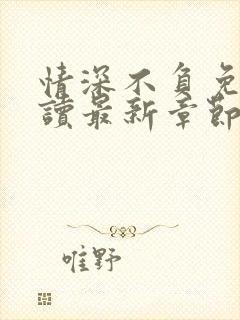 情深不负免
读最新章節
唯野